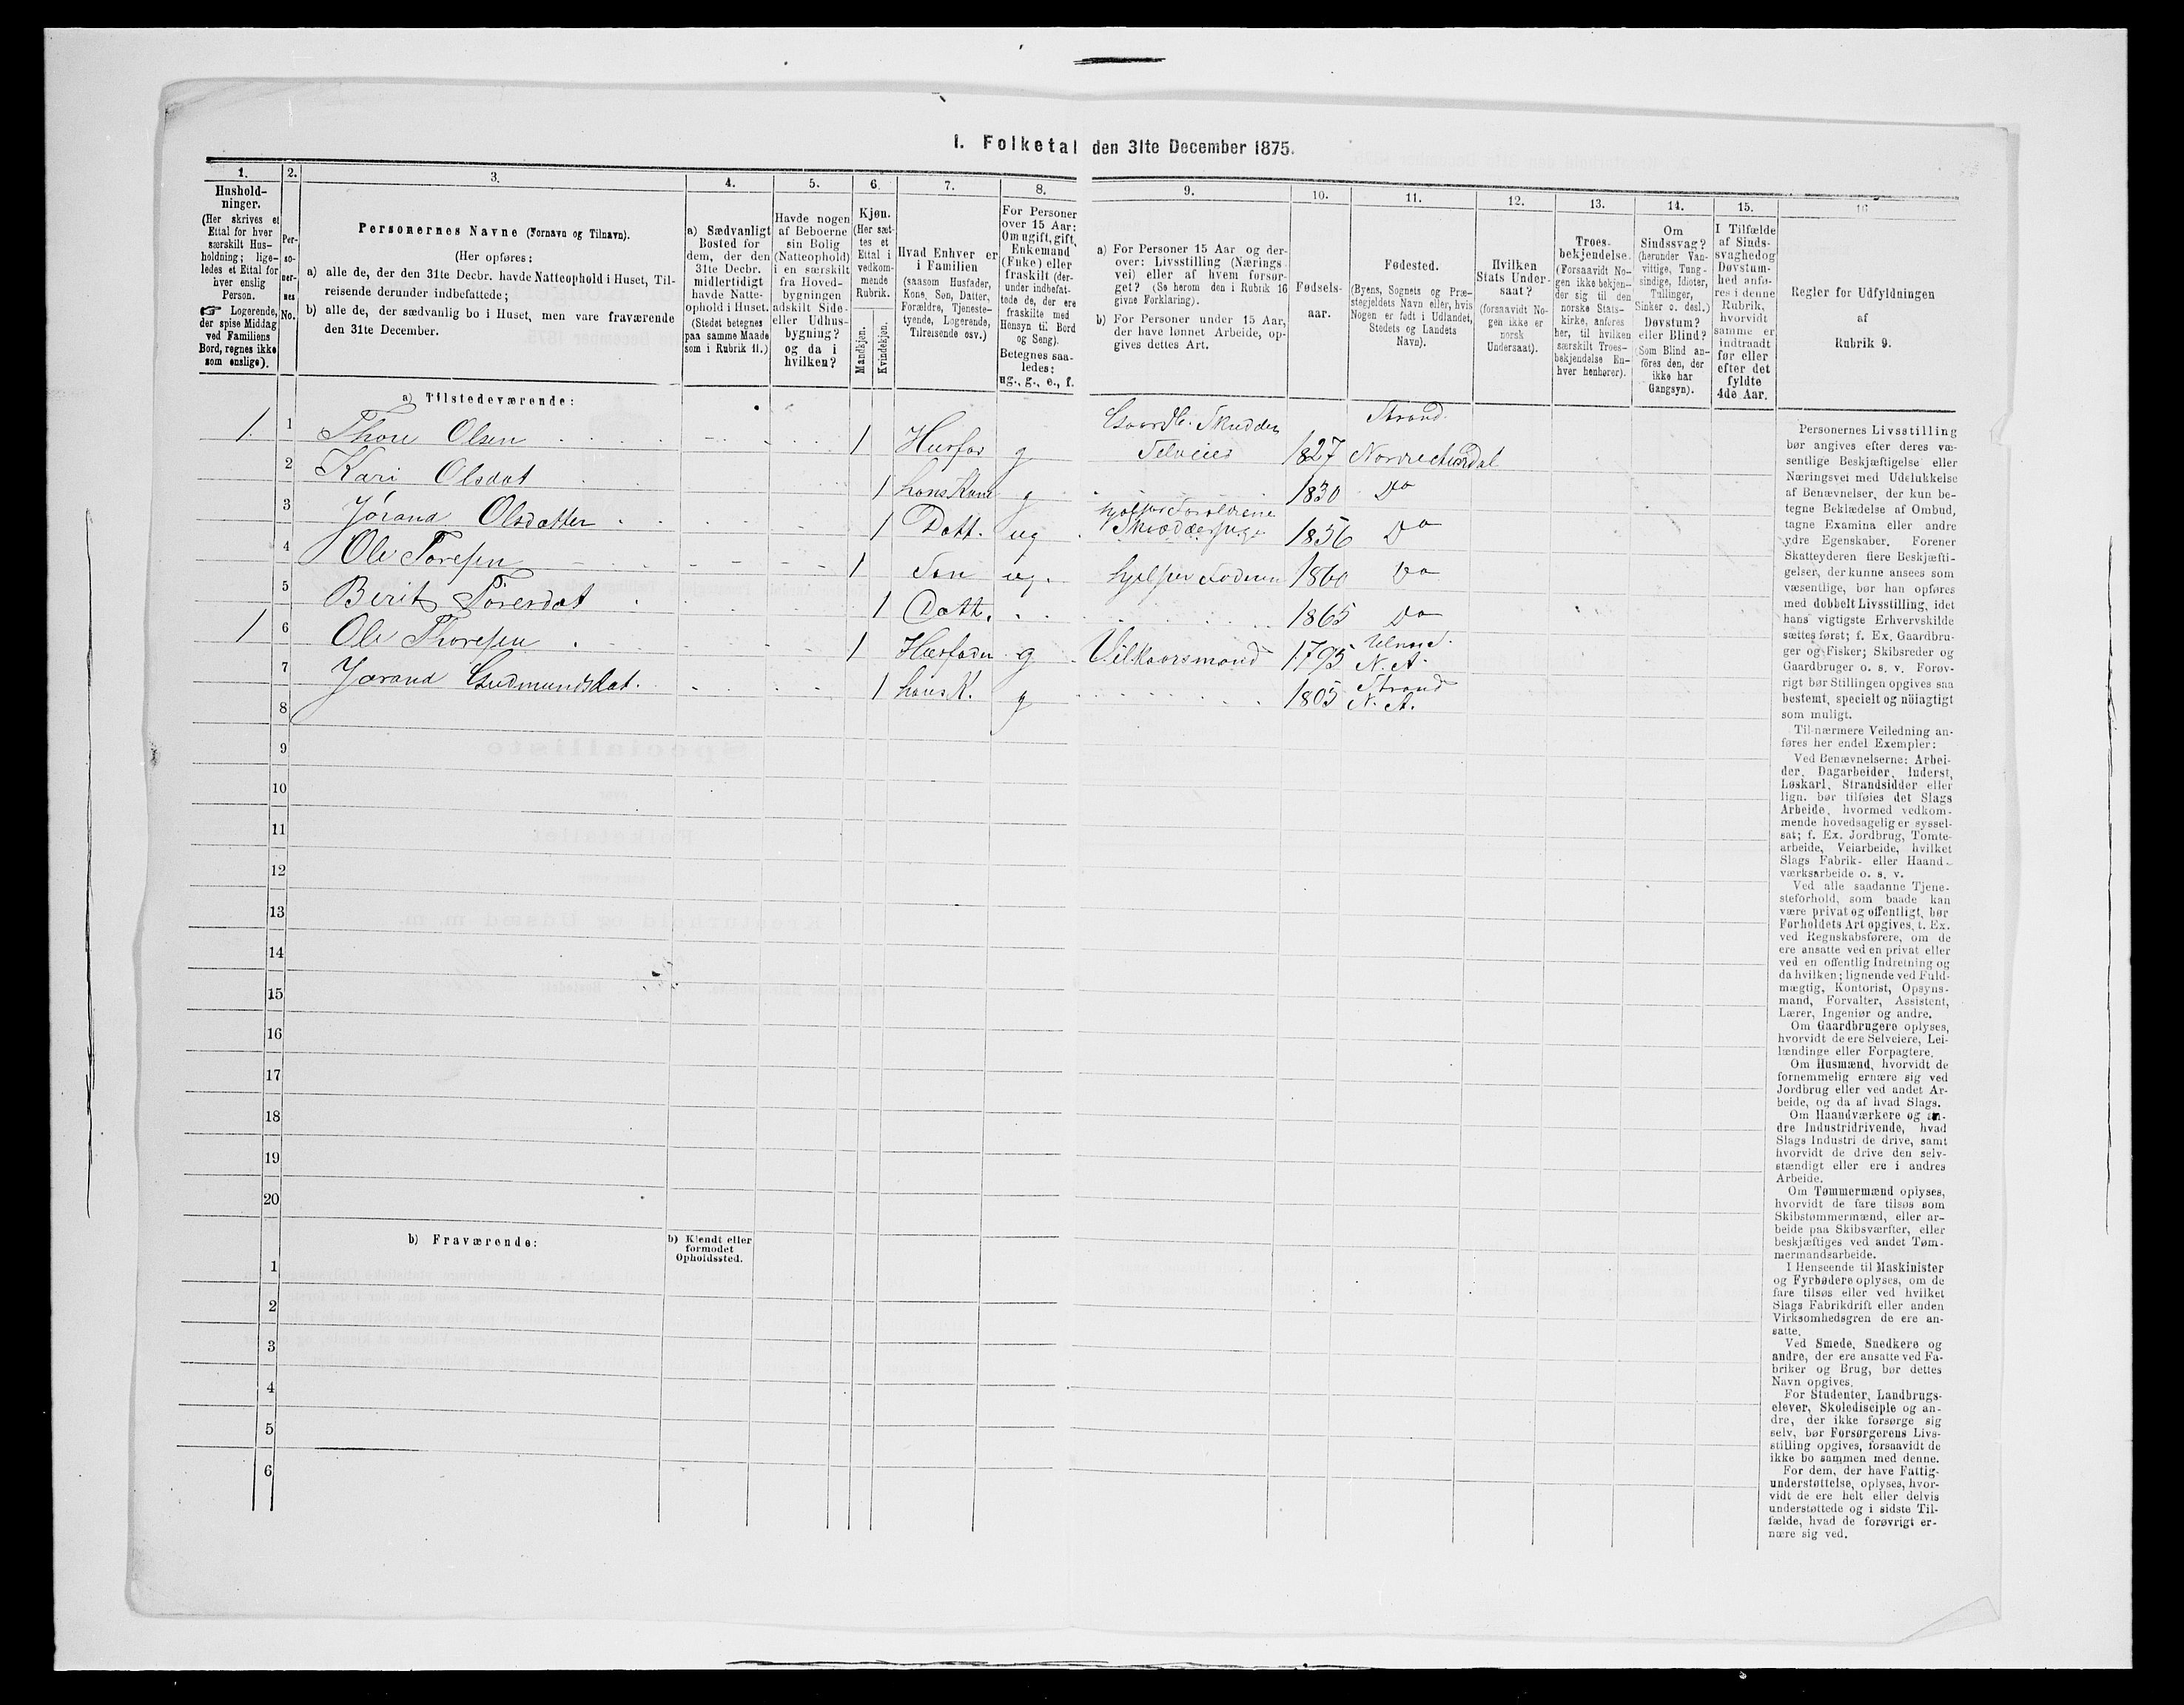 I. Folketal den 31te December 1875.
1.
Hushold-
ninger.
(Her skrives et
Ettal for hver
særskilt Hus-
holdning; lige-
ledes et Ettal for
hver enslig
Person.
☞ Logerende,
der spise Middag
ved Familiens
Bord, regnes ikke
som enslige).
2.
Per-
so-
ner-
nes
No.
3.
Personernes Navne (Fornavn og Tilnavn).
(Her opføres:
a) alle de, der den 31te Decbr. havde Natteophold i Huset, Til-
reisende derunder indbefattede;
b) alle de, der sædvanlig bo i Huset, men vare fraværende
den 31te December.
4.
a) Sædvanligt
Bosted for
dem, der den
31te Decbr.
midlertidigt
havde Natte-
ophold i Huset.
(Stedet betegnes
paa samme Maade
som i Rubrik 11.)
5.
Havde nogen
af Beboerne
sin Bolig
(Natteophold)
i en særskilt
fra Hoved-
bygningen
adskilt Side-
eller Udhus-
bygning?
og da i
hvilken?
6.
Kjøn.
(Her sæt-
tes et
Ettal i
vedkom-
mende
Rubrik.
Mandkjøn.
Kvindekjøn.
7.
Hvad Enhver er
i Familien
(saasom Husfader,
Kone, Søn, Datter,
Forældre, Tjeneste-
tyende, Logerende,
Tilreisende osv.)
8.
For Personer
over 15 Aar:
Om ugift, gift,
Enkemand
(Enke) eller
fraskilt (der-
under indbefat-
tede de, der ere
fraskilte med
Hensyn til Bord
og Seng).
Betegnes saa-
ledes:
ug., g., e., f.
9.
a) For Personer 15 Aar og der-
over: Livsstilling (Nærings-
vei) eller af hvem forsør-
get? (Se herom den i Rubrik 16
givne Forklaring).
b) For Personer under 15 Aar,
der have lønnet Arbeide, op-
gives dettes Art.
10.
Fødsels-
aar.
11.
Fødested.
(Byens, Sognets og Præ-
stegjeldets Navn eller, hvis
Nogen er født i Udlandet,
Stedets og Landets
Navn).
12.
Hvilken
Stats Under-
saat?
(forsaavidt No-
gen ikke er
norsk
Undersaat).
13.
Troes-
bekjendelse.
(Forsaavidt No-
gen ikke bekjen-
der sig til den
norske Stats-
kirke, anføres
her, til hvilken
særskilt Troes-
bekjendelse En-
hver henhører).
14.
Om
Sindssvag?
(herunder Van-
vittige, Tung-
sindige, Idioter,
Tullinger,
Sinker o. desl.)
Døvstum?
eller Blind?
(Som Blind an-
føres den, der
ikke har
Gangsyn).
15.
I Tilfælde
af Sinds-
svaghed og
Døvstum-
hed anfø-
res i denne
Rubrik,
hvorvidt
samme er
indtraadt
før eller
efter det
fyldte
4de Aar.
16
Regler for Udfyldningen
af
Rubrik 9.
a) Tilstedeværende:
Gaardb. Skudder Strand
1. 1 Thore Olsen 1 Husfar g Selveier 1827 Norreaurdal
2 Kari Olsdat 1 hans Kone g 1830 Do
hjelper Forældrene
3 Jórand Olsdatter 1 Datt. ug 1856 Do
4 Ole Toresen 1 Søn ug. hjelper Faderen 1860 Do
5 Berit Toresdat 1 Datt. 1865 Do
Ulnes
1 6 Ole Thoresen 1 Husfader g Vilkaarsmand 1795 N. A.
Strand
7 Jorand Gudmundsdat. 1 hans K. g 1805 N. A.
8
9
10
11
12
13
14
15
16
17
18
19
20
b) Fraværende:
b) Kjendt eller
formodet
Opholdssted.
1
2
3
4
5
6
Personernes Livsstilling
bør angives efter deres væ-
sentlige Beskjæftigelse eller
Næringsvei med Udelukkelse
af Benævnelser, der kun be-
tegne Beklædelse af Ombud,
tagne Examina eller andre
ydre Egenskaber. Forener
Skatteyderen flere Beskjæfti-
gelser, der kunne ansees som
væsentlige, bør han opføres
med dobbelt Livsstilling, idet
hans vigtigste Erhvervskilde
sættes først; f. Ex. Gaardbru-
ger og Fisker; Skibsreder og
Gaardbruger o. s. v. Forøv-
rigt bør Stillingen opgives saa
bestemt, specielt og nöiagtigt
som muligt.
Til nærmere Veiledning an-
føres her endel Exempler:
Ved Benævnelserne: Arbei-
der, Dagarbeider, Inderst,
Løskarl, Strandsidder eller
lign. bør tilføies det Slags
Arbeide, hvormed vedkom-
mende hovedsagelig er syssel-
sat; f. Ex. Jordbrug, Tomte-
arbeide, Veiarbeide, hvilket
Slags Fabrik- eller Haand-
værksarbeide o. s. v.
Ved alle saadanne Tjene-
steforhold, som baade kan
være privat og offentligt, bør
Forholdets Art opgives, t. Ex.
ved Regnskabsførere, om de
ere ansatte ved en privat eller
ved en offentlig Indretning og
da hvilken; lignende ved Fuld-
mægtig, Kontorist, Opsyns-
mand, Forvalter, Assistent,
Lærer, Ingeniør og andre.
Om Gaardbrugere oplyses,
hvorvidt de ere Selveiere, Lei-
lændinge eller Forpagtere.
Om Husmænd, hvorvidt de
fornemmelig ernære sig ved
Jordbrug eller ved andet Ar-
beide, og da af hvad Slags.
Om Haandværkere og an-
dre Industridrivende, hvad
Slags Industri de drive, samt
hvorvidt de drive den selv-
stændigt eller ere i andres
Arbeide.
Om Tømmermænd oplyses,
hvorvidt de fare tilsøs som
Skibstømmermænd, eller ar-
beide paa Skibsværfter, eller
beskjæftiges ved andet Tøm-
mermandsarbeide.
I Henseende til Maskinister
og Fyrbødere oplyses, om de
fare tilsøs eller ved hvilket
Slags Fabrikdrift eller anden
Virksomhedsgren de ere an-
satte.
Ved Smede, Snedkere og
andre, der ere ansatte ved Fa-
briker og Brug, bør dettes
Navn opgives.
For Studenter, Landbrugs-
elever, Skoledisciple og an-
dre, der ikke forsørge sig
selv, bør Forsørgerens Livs-
stilling opgives, forsaavidt de
ikke bo sammen med denne.
For dem, der have Fattig-
understøttelse, oplyses, hvor-
vidt de ere helt eller delvis
understøttede og i sidste Til-
fælde, hvad de forøvrigt er-
nære sig ved.